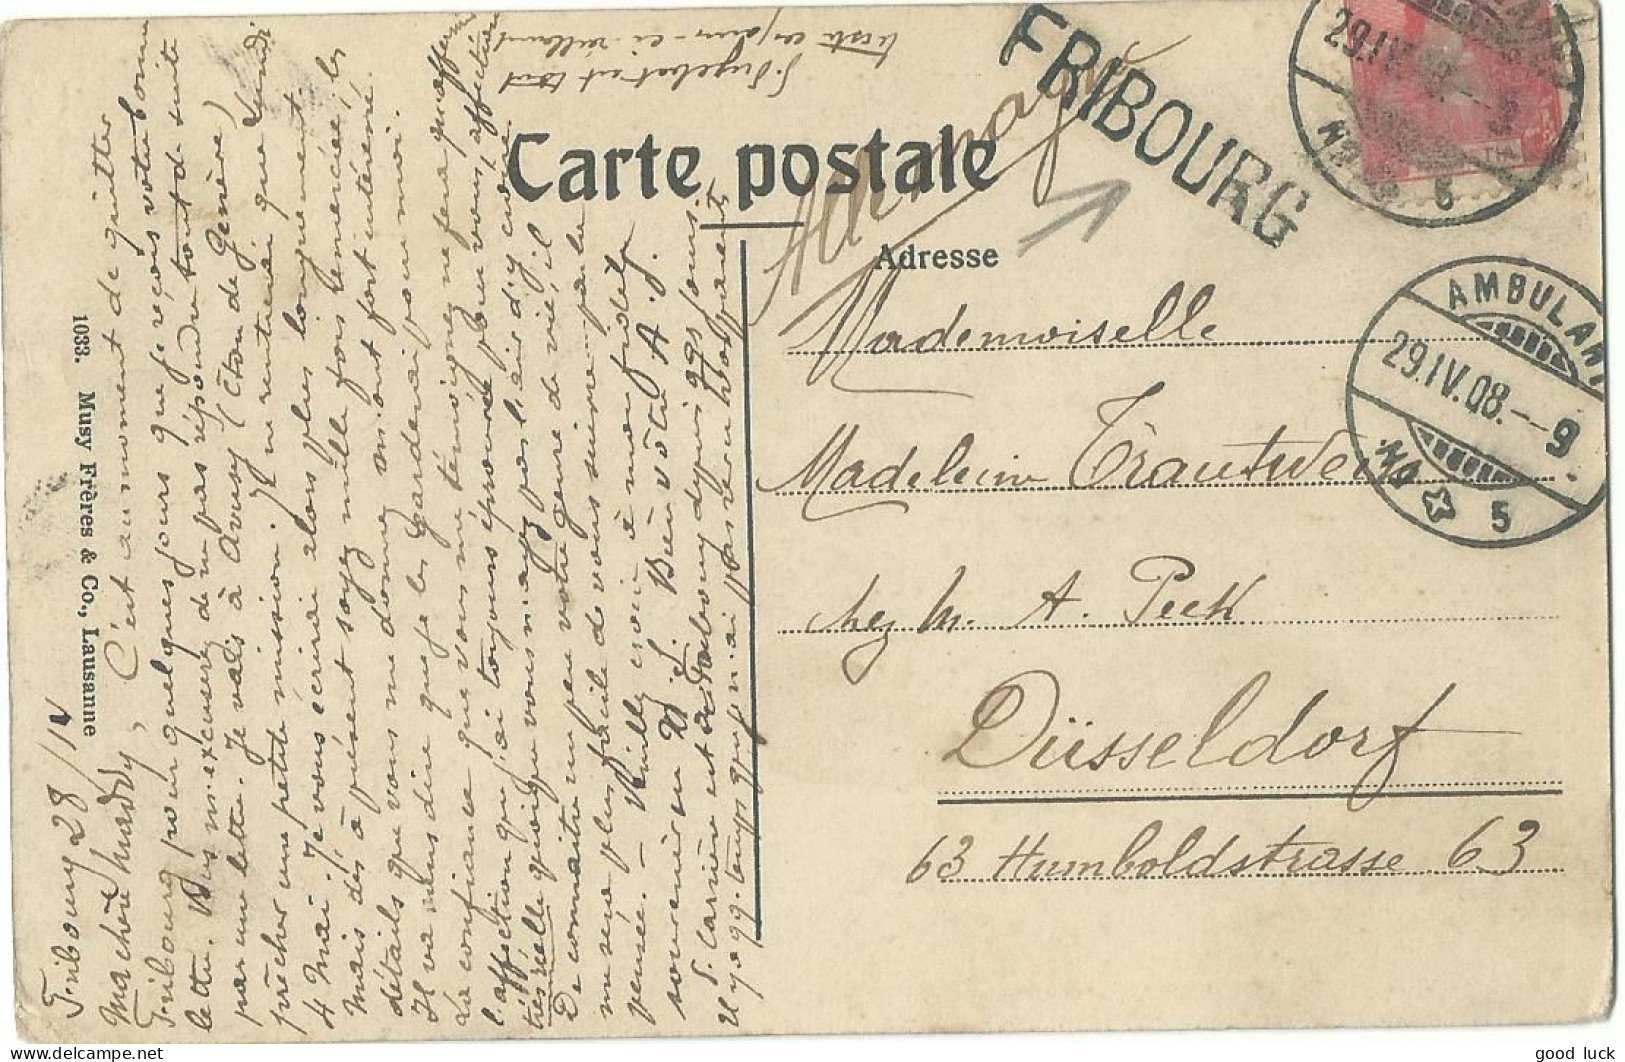 Carte postale
Allemagne
FRIBOURG
29.IV.08.
5
AMBULANT
29.IV.08.-9
No 5
Adresse
Mademoiselle
Madeleine Trautwein
chez M. A. Peek
Düsseldorf
63 Humboldstrasse 63
1033. Musy Frères & Co., Lausanne
Fribourg 28/IV
C'est au moment de quitter
Fribourg pour quelques jours que je reçois votre bonne
lettre. m'excuserez de ne pas répondre tout de suite
par une lettre. Je vais à Avusy (Cton de Genève)
prêcher une petite mission. Je ne rentrerai que lundi
4 Mai. Je vous écrirai alors plus longuement.
Mais dès à présent soyez mille fois remerciée; les
détails que vous me donnez m'ont fort intéressé.
Il va sans dire que je les garderai pour moi.
La confiance que vous me témoignez ne fera qu'affermir
l'affection que j'ai toujours éprouvée pour vous, affection
très réelle quoique vous n'ayez pas l'air d'y croire.
De connaître un peu votre genre de vie, il
me sera plus facile de vous suivre par la
pensée. – Veuillez croire à mon fidèle
souvenir en N. S. Bien vôtre A. J.
S. Carrière est à Fribourg depuis qqs jours.
Il y a qq. temps que je n'ai pas revu vos parents
S. Ingelbert est tout
good_luck